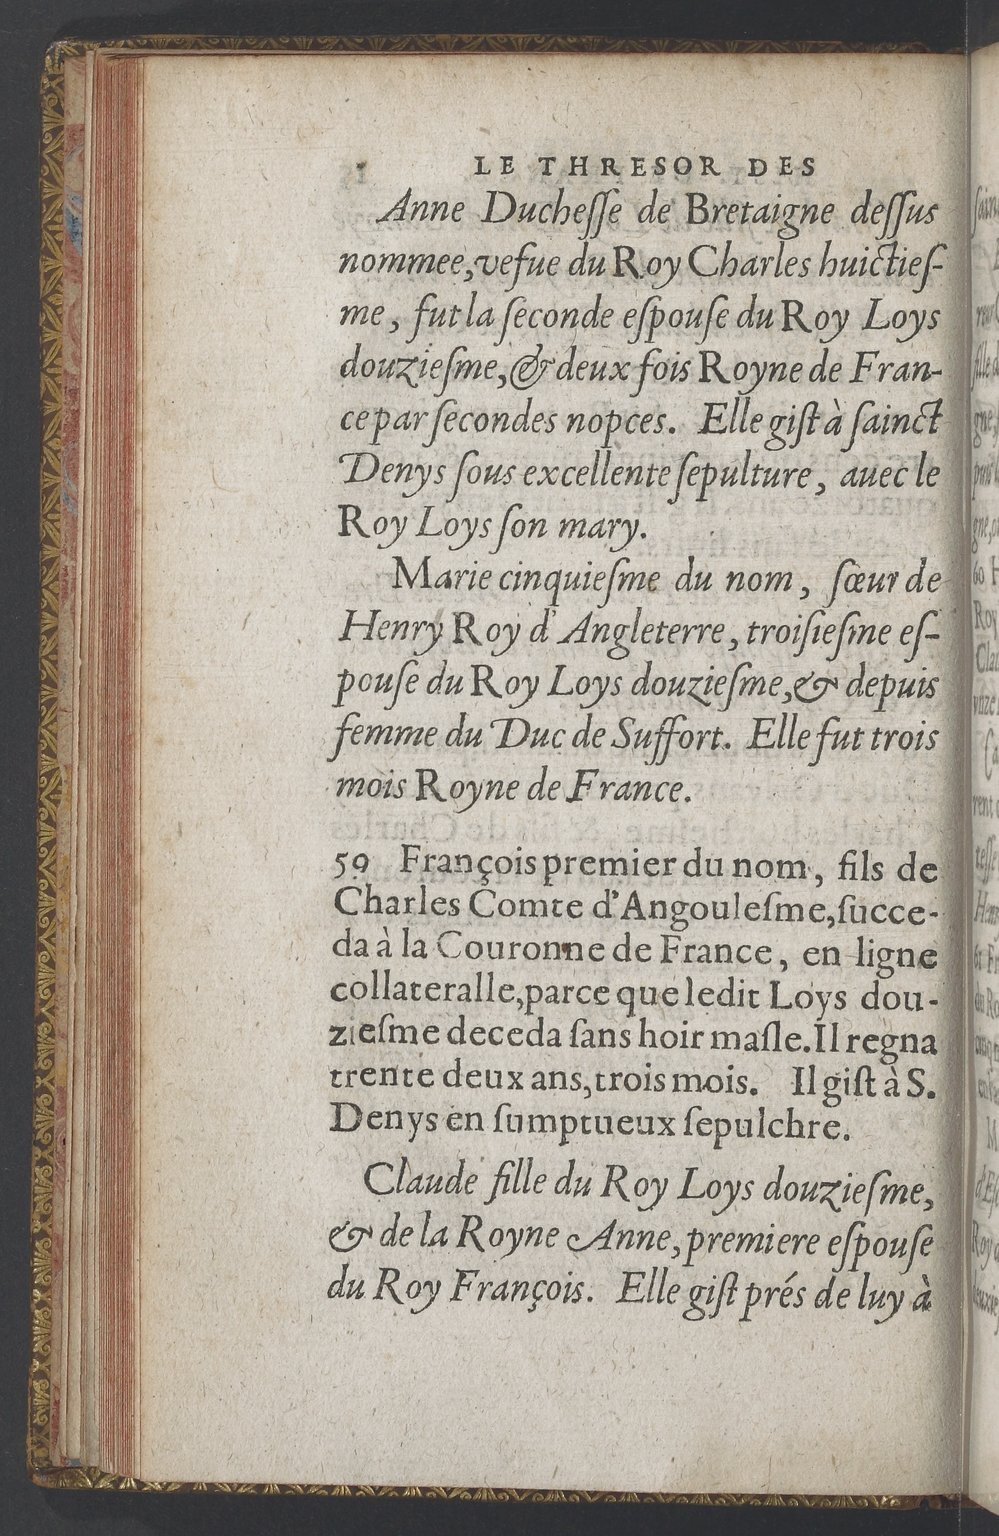 LE THRESOR DES
Anne Ducheſſe de Bretaigne deſſus
nommee, vefue du Roy Charles huictieſ-
me, fut la ſeconde eſpouſe du Roy Loys
douzieſme, & deux fois Royne de Fran-
ce par ſecondes nopces. Elle giſt à ſainct
Denys ſous excellente ſepulture, auec le
Roy Loys ſon mary.
Marie cinquieſme du nom, ſœur de
Henry Roy d'Angleterre, troiſieſme eſ-
pouſe du Roy Loys douzieſme, & depuis
femme du Duc de Suffort. Elle fut trois
mois Royne de France.
59 François premier du nom, fils de
Charles Comte d'Angouleſme, ſucce-
da à la Couronne de France, en ligne
collateralle, parce que ledit Loys dou-
zieſme deceda ſans hoir maſle. Il regna
trente deux ans, trois mois. Il giſt à S.
Denys en ſumptueux ſepulchre.
Claude fille du Roy Loys douzieſme,
& de la Royne Anne, premiere eſpouſe
du Roy François. Elle giſt prés de luy à